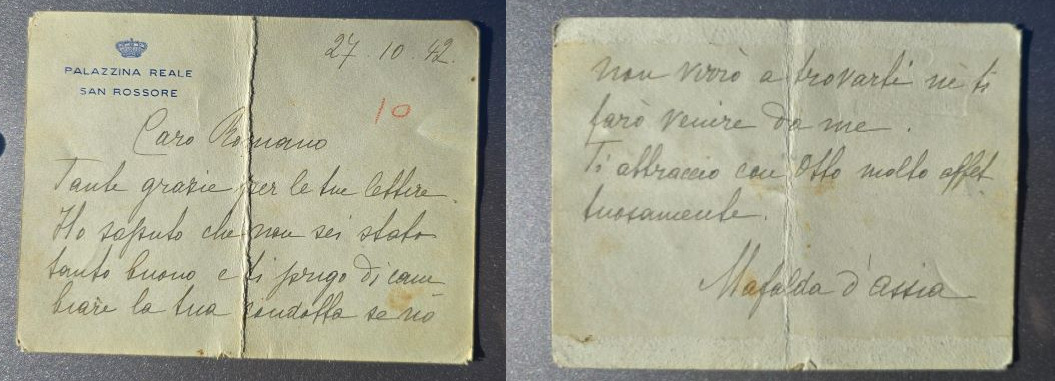 PALAZZINA REALE
SAN ROSSORE
27.10.42.
10
Caro Romano
Tante grazie per le tue lettere.
Ho saputo che non sei stato
tanto buono e ti prego di cam
biare la tua condotta se nō
non verrò a trovarti nè ti
farò venire da me.
Ti abbraccio con Otto molto affet
tuosamente.
Mafalda d'Assia